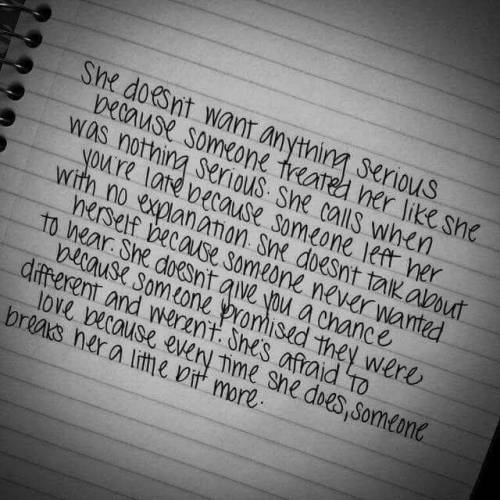 She doesn't want anything serious
because someone treated her like she
was nothing serious. She calls when
you're late because someone left her
with no explanation. She doesn't talk about
herself because someone never wanted
to hear. She doesn't give you a chance
because someone promised they were
different and weren't. She's afraid to
love because every time she does, someone
breaks her a little bit more.